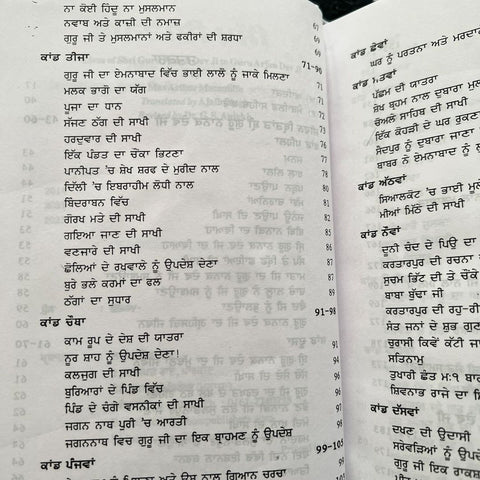 ਨਾ ਕੋਈ ਹਿੰਦੂ ਨਾ ਮੁਸਲਮਾਨ
ਨਵਾਬ ਅਤੇ ਕਾਜ਼ੀ ਦੀ ਨਮਾਜ਼ 67
ਗੁਰੂ ਜੀ ਤੇ ਮੁਸਲਮਾਨਾਂ ਅਤੇ ਫਕੀਰਾਂ ਦੀ ਸ਼ਰਧਾ 69
ਕਾਂਡ ਤੀਜਾ 71-90
ਗੁਰੂ ਜੀ ਦਾ ਏਮਨਾਬਾਦ ਵਿੱਚ ਭਾਈ ਲਾਲੋ ਨੂੰ ਜਾਕੇ ਮਿਲਣਾ 71
ਮਲਕ ਭਾਗੋ ਦਾ ਯੱਗ 71
ਪੂਜਾ ਦਾ ਧਾਨ
ਸੱਜਣ ਠੱਗ ਦੀ ਸਾਖੀ
ਹਰਦੁਵਾਰ ਦੀ ਸਾਖੀ
ਇੱਕ ਪੰਡਤ ਦਾ ਚੌਕਾ ਭਿਟਣਾ 77
ਪਾਨੀਪਤ 'ਚ ਸ਼ੇਖ ਸ਼ਰਫ ਦੇ ਮੁਰੀਦ ਨਾਲ
ਦਿੱਲੀ 'ਚ ਇਬਰਾਹੀਮ ਲੋਧੀ ਨਾਲ
ਬਿੰਦਰਾਬਨ ਵਿੱਚ 81
ਗੋਰਖ ਮਤੇ ਦੀ ਸਾਖੀ 82
ਗਇਆ ਜਾਣ ਦੀ ਸਾਖੀ 85
ਵਣਜਾਰੇ ਦੀ ਸਾਖੀ
ਛੋਲਿਆਂ ਦੇ ਰਖਵਾਲੇ ਨੂੰ ਉਪਦੇਸ਼ ਦੇਣਾ 87
ਬੁਰੇ ਭਲੇ ਕਰਮਾਂ ਦਾ ਫਲ
ਠੱਗਾਂ ਦਾ ਸੁਧਾਰ 89
ਕਾਂਡ ਚੌਥਾ 91-98
ਕਾਮ ਰੂਪ ਦੇ ਦੇਸ਼ ਦੀ ਯਾਤਰਾ 91
ਨੂਰ ਸ਼ਾਹ ਨੂੰ ਉਪਦੇਸ਼ ਦੇਣਾ! 94
ਕਲਜੁਗ ਦੀ ਸਾਖੀ 94
ਬੁਰਿਆਰਾਂ ਦੇ ਪਿੰਡ ਵਿੱਚ
ਪਿੰਡ ਦੇ ਚੰਗੇ ਵਸਨੀਕਾਂ ਦੀ ਸਾਖੀ
ਜਗਨ ਨਾਥ ਪੁਰੀ 'ਚ ਆਰਤੀ
ਜਗਨਨਾਥ ਵਿਚ ਗੁਰੂ ਜੀ ਦਾ ਇਕ ਬ੍ਰਾਹਮਣ ਨੂੰ ਉਪਦੇਸ਼
ਕਾਂਡ ਪੰਜਵਾਂ 99-105
ਨਾਲ ਗਿਆਨ ਚਰਚਾ 99
ਕਾਂਡ ਛੇਵਾਂ
ਘਰ ਨੂੰ ਪਰਤਨਾ ਅਤੇ ਮਰਦਾਨੇ
ਕਾਂਡ ਸਤਵਾਂ
ਪੱਛਮ ਦੀ ਯਾਤਰਾ
ਸ਼ੇਖ ਬ੍ਰਹਮ ਨਾਲ ਦੁਬਾਰਾ
ਚੋਅਲੇ ਸਾਹਿਬ ਦੀ ਸਾਖੀ
ਇੱਕ ਕੋਹੜੀ ਦੇ ਘਰ ਰੁਕਣਾ
ਸੈਦਪੁਰ ਨੂੰ ਦੁਬਾਰਾ ਜਾਣਾ
ਬਾਬਰ ਨੇ ਏਮਨਾਬਾਦ ਨੂੰ
ਕਾਂਡ ਅੱਠਵਾਂ
ਸਿਆਲਕੋਟ 'ਚ ਭਾਈ ਮੂਲੇ
ਮੀਆਂ ਮਿੱਠੇ ਦੀ ਸਾਖੀ
ਕਾਂਡ ਨੌਵਾਂ
ਦੂਨੀ ਚੰਦ ਦੇ ਪਿਉ ਦਾ
ਕਰਤਾਰਪੁਰ ਦੀ ਰਚਨਾ
ਸੁਚਮ ਭਿੱਟ ਦੀ ਤੇ ਚੌਕੇ
ਬਾਬਾ ਬੁੱਢਾ ਜੀ
ਕਰਤਾਰਪੁਰ ਦੀ ਰਹੁ-ਰੀਤ
ਸੰਤ ਜਨਾਂ ਦੇ ਸ਼ੁਭ ਗੁਣ
ਚੁਰਾਸੀ ਕਿਵੇਂ ਕੱਟੀ
ਸਤਿਨਾਮੁ
ਤੁਖਾਰੀ ਛੰਤ ਮ:੧ ਬਾਰਹ
ਸ਼ਿਵਨਾਭ ਰਾਜੇ ਦਾ
ਕਾਂਡ ਦੱਸਵਾਂ
ਦਖਣ ਦੀ ਉਦਾਸੀ
ਸਰੇਵੜਿਆਂ ਨੂੰ ਉਪਦੇਸ਼
ਗੁਰੂ ਜੀ ਇਕ ਰਾਕਸ਼